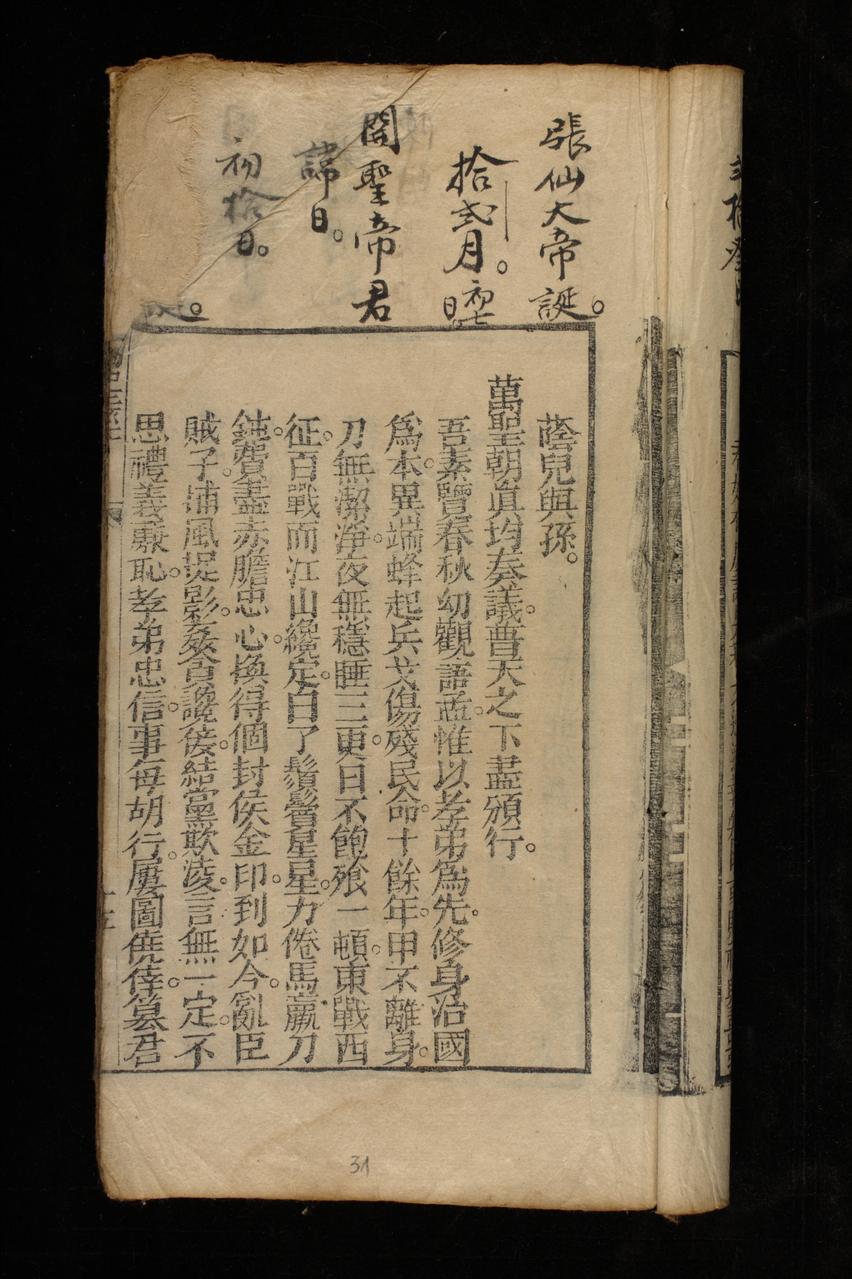 張仙大帝誕。
拾弍月。初七日
關聖帝君
諱日。
初拾日。
誕。
蔭兒與孫。
萬聖朝真均奏議。普天之下盡頒行。
吾素覽春秋幼觀語孟。惟以孝弟爲先。修身治國
爲本。異端蜂起兵戈傷殘民命。十餘年。甲不離身。
刀無潔淨。夜無穩睡三更。日不飽飧一頓。東戰西
征。百戰而江山纔定。白了鬚鬢星星。力倦馬羸刀
鈍。費盡赤膽忠心。換得個封侯金印。到如今。亂臣
賊子。捕風捉影。姦貪讒佞。結黨欺凌。言無一定。不
思禮義廉恥。孝弟忠信。事每胡行。屢圖僥倖。篡君
31